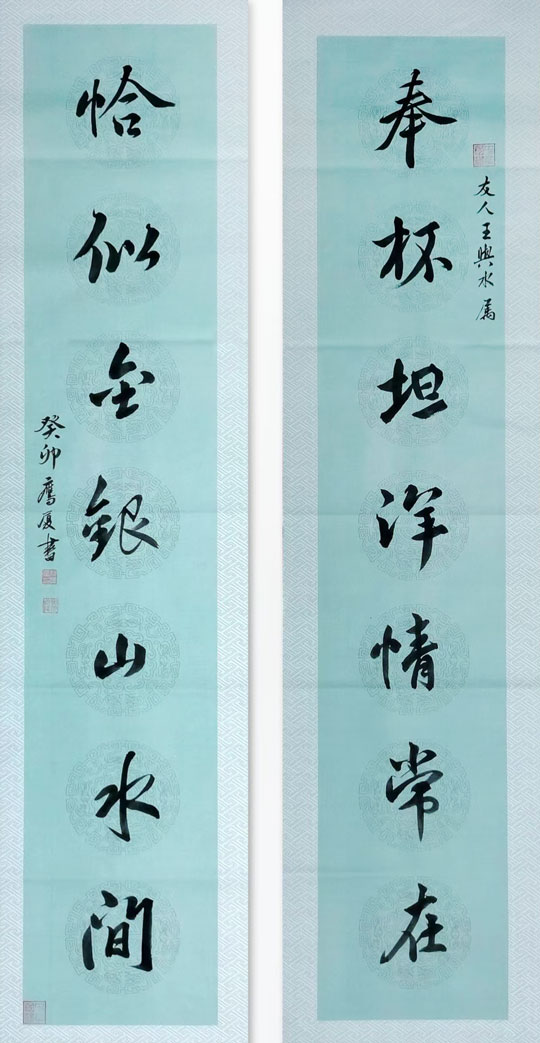 奉杯坦洋情常在
友人王興水属
恰似金銀山水間
癸卯鹰厦書